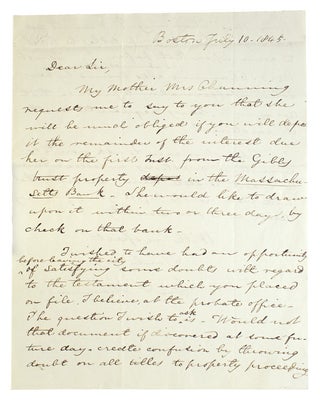 Boston July 10 - 1845
Dear Sir,
My Mother Mrs Channing
requests me to say to you that she
will be much obliged if you will depos
it the remainder of the interest due
her on the first inst from the Gibbs
trust property depos in the Massachu
setts Bank. She would like to draw
upon it within two or three days, by
check on that bank.
I wished to have had an opportunity
before leaving the city
of satisfying some doubts with regard
to the testament which you placed
on file, I believe, at the probate office.
ask
The question I wish to is - Would not
that document if discovered at some fu-
ture day create confusion by throwing
doubt on all titles to property proceeding